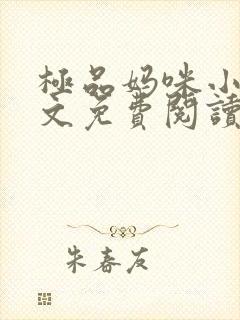 極品妈咪小
文免費閱讀
朱春友